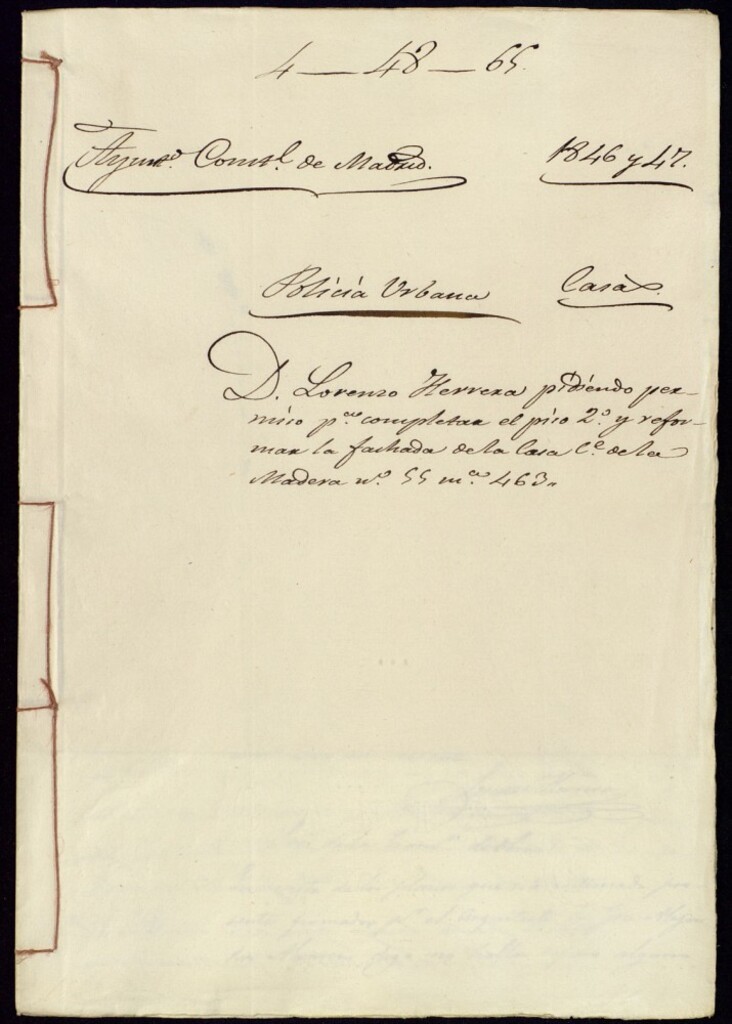 4 — 48 — 65.
Ayunt.º Const.l de Madrid.
1846 y 47.
Policía Urbana
Casas.
D. Lorenzo Herrera pidiendo per-
miso p.ª completar el piso 2.º y refor-
mar la fachada de la Casa C.e de la
Madera n.º 55 m.ª 463.